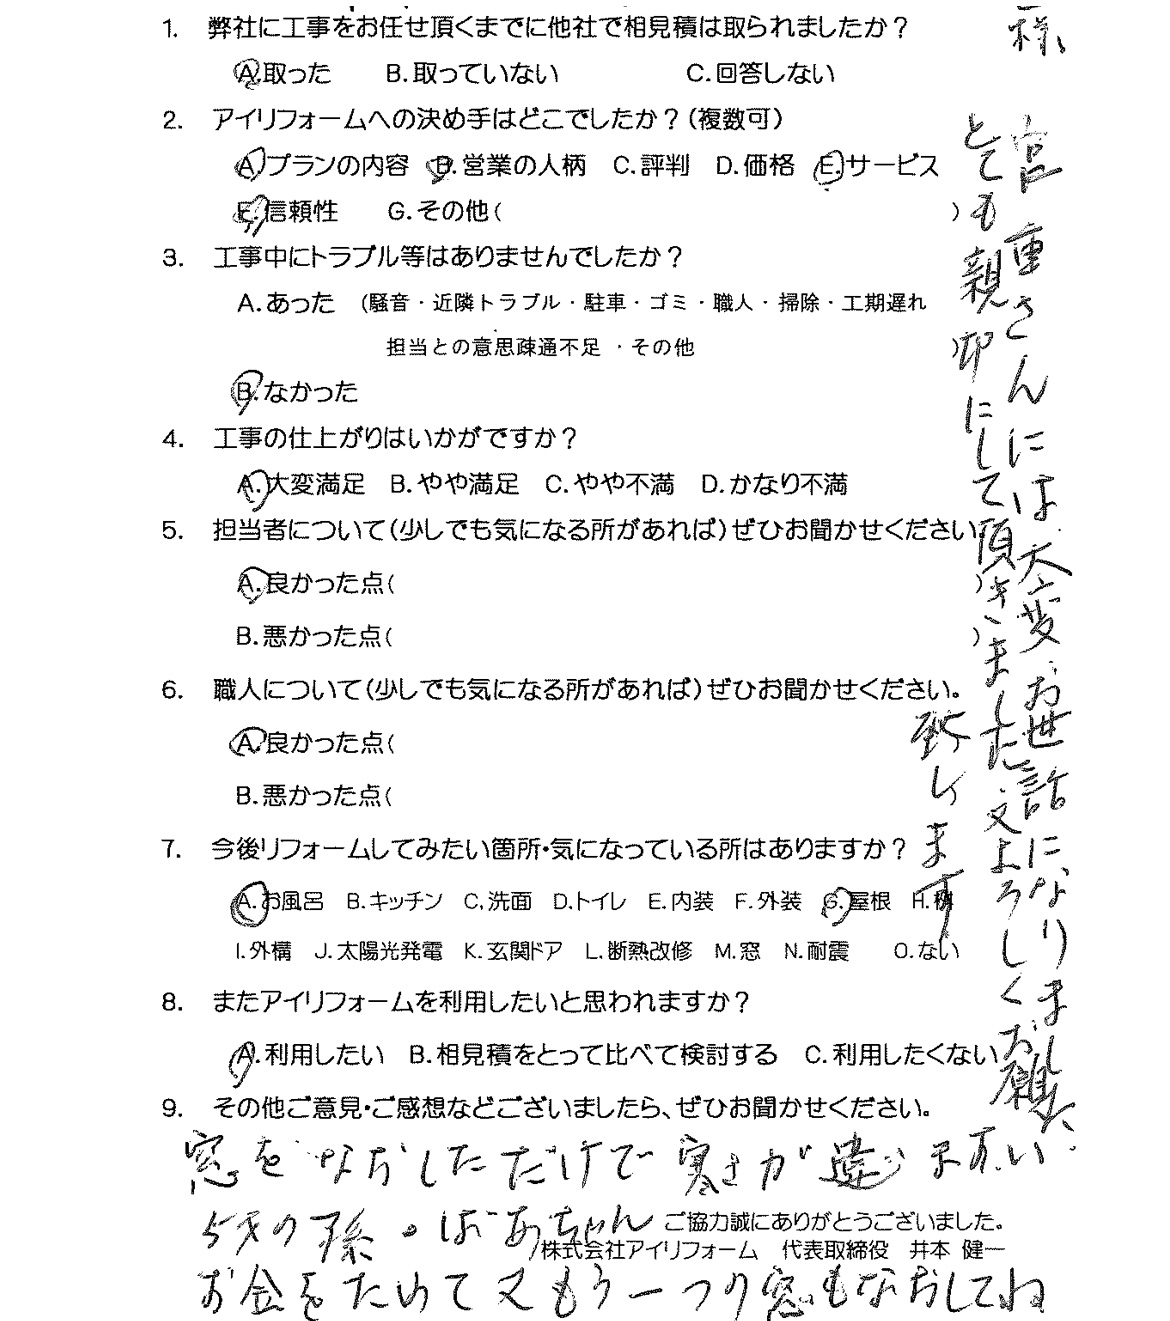 1. 弊社に工事をお任せ頂くまでに他社で相見積は取られましたか？
A.取った B.取っていない C.回答しない
2. アイリフォームへの決め手はどこでしたか？(複数可)
A.プランの内容 B.営業の人柄 C.評判 D.価格 E.サービス
F.信頼性 G.その他( )
3. 工事中にトラブル等はありませんでしたか？
A.あった (騒音・近隣トラブル・駐車・ゴミ・職人・掃除・工期遅れ
担当との意思疎通不足 ・その他 )
B.なかった
4. 工事の仕上がりはいかがですか？
A.大変満足 B.やや満足 C.やや不満 D.かなり不満
5. 担当者について(少しでも気になる所があれば)ぜひお聞かせください。
A.良かった点( )
B.悪かった点( )
6. 職人について(少しでも気になる所があれば)ぜひお聞かせください。
A.良かった点(
B.悪かった点(
7. 今後リフォームしてみたい箇所・気になっている所はありますか？
A.お風呂 B.キッチン C.洗面 D.トイレ E.内装 F.外装 G.屋根 H.樋
I.外構 J.太陽光発電 K.玄関ドア L.断熱改修 M.窓 N.耐震 O.ない
8. またアイリフォームを利用したいと思われますか？
A.利用したい B.相見積をとって比べて検討する C.利用したくない
9. その他ご意見・ご感想などございましたら、ぜひお聞かせください。
窓をなおしただけで寒さが違います。
5才の孫。ばあちゃん
お金をためて又もう一つの窓もなおしてね
ご協力誠にありがとうございました。
株式会社アイリフォーム 代表取締役 井本 健一
様
重さんには大変お世話になりました。
とても親切にして頂きました。又よろしくお願い
致します